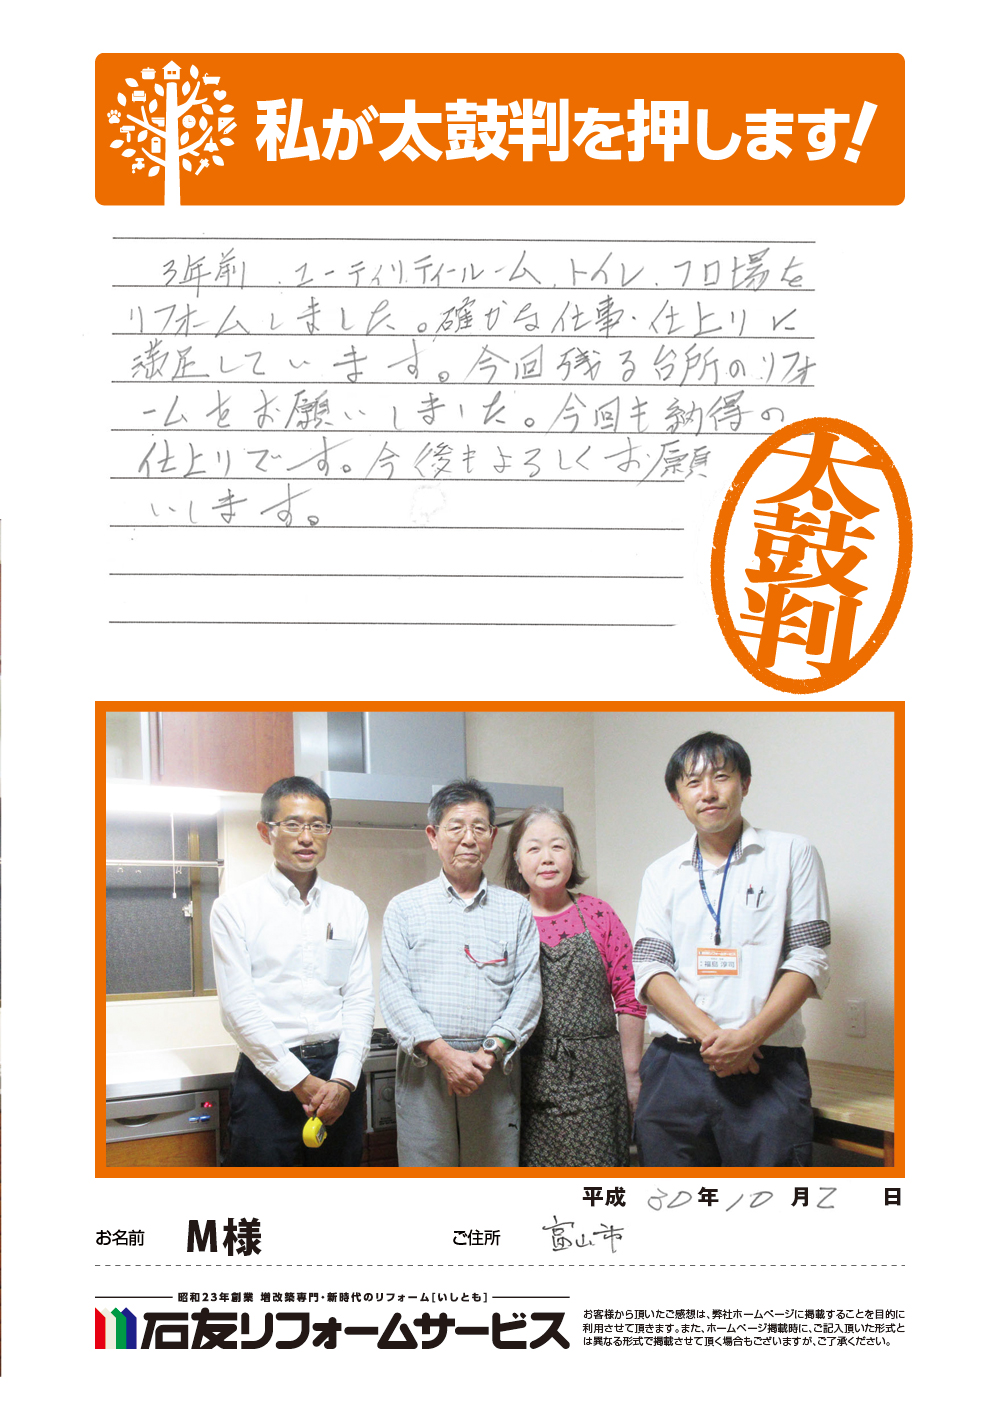 私が太鼓判を押します!
3年前、ユーティリティールーム、トイレ、フロ場を
リフォームしました。確かな仕事・仕上りに
満足しています。今回残る台所のリフォ
ームをお願いしました。今回も納得の
仕上りです。今後もよろしくお願
いします。
太鼓判
福島 淳司
平成 30年 10月 2 日
お名前 M様 ご住所 富山市
昭和23年創業 増改築専門・新時代のリフォーム[いしとも]
石友リフォームサービス
お客様から頂いたご感想は、弊社ホームページに掲載することを目的に
利用させて頂きます。また、ホームページ掲載時に、ご記入頂いた形式と
は異なる形式で掲載させて頂く場合もございますが、ご了承ください。